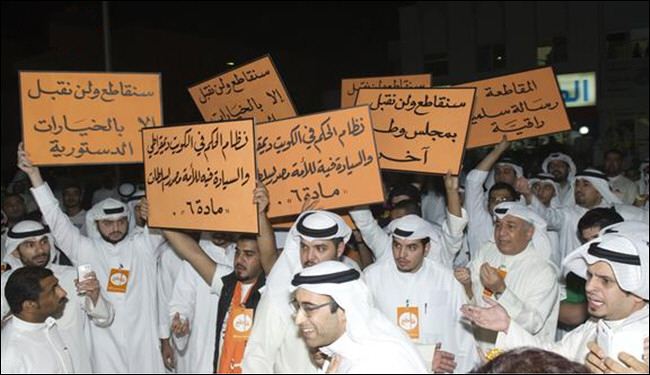 سنقاطع ولن نقبل
إلا بالخيارات
الدستورية
سنقاطع ولن نقبل
إلا بالخيارات
نظام الحكم في الكويت ديمقراطي
والسيادة فيه للأمة مصدر السلطات
"مادة ٦"
نظام الحكم في الكويت
والسيادة فيه للأمة مصدر
"مادة ٦"
سنقاطع ولن نقبل
بمجلس وطني
آخر
المقاطعة
رسالة سلمية
راقية